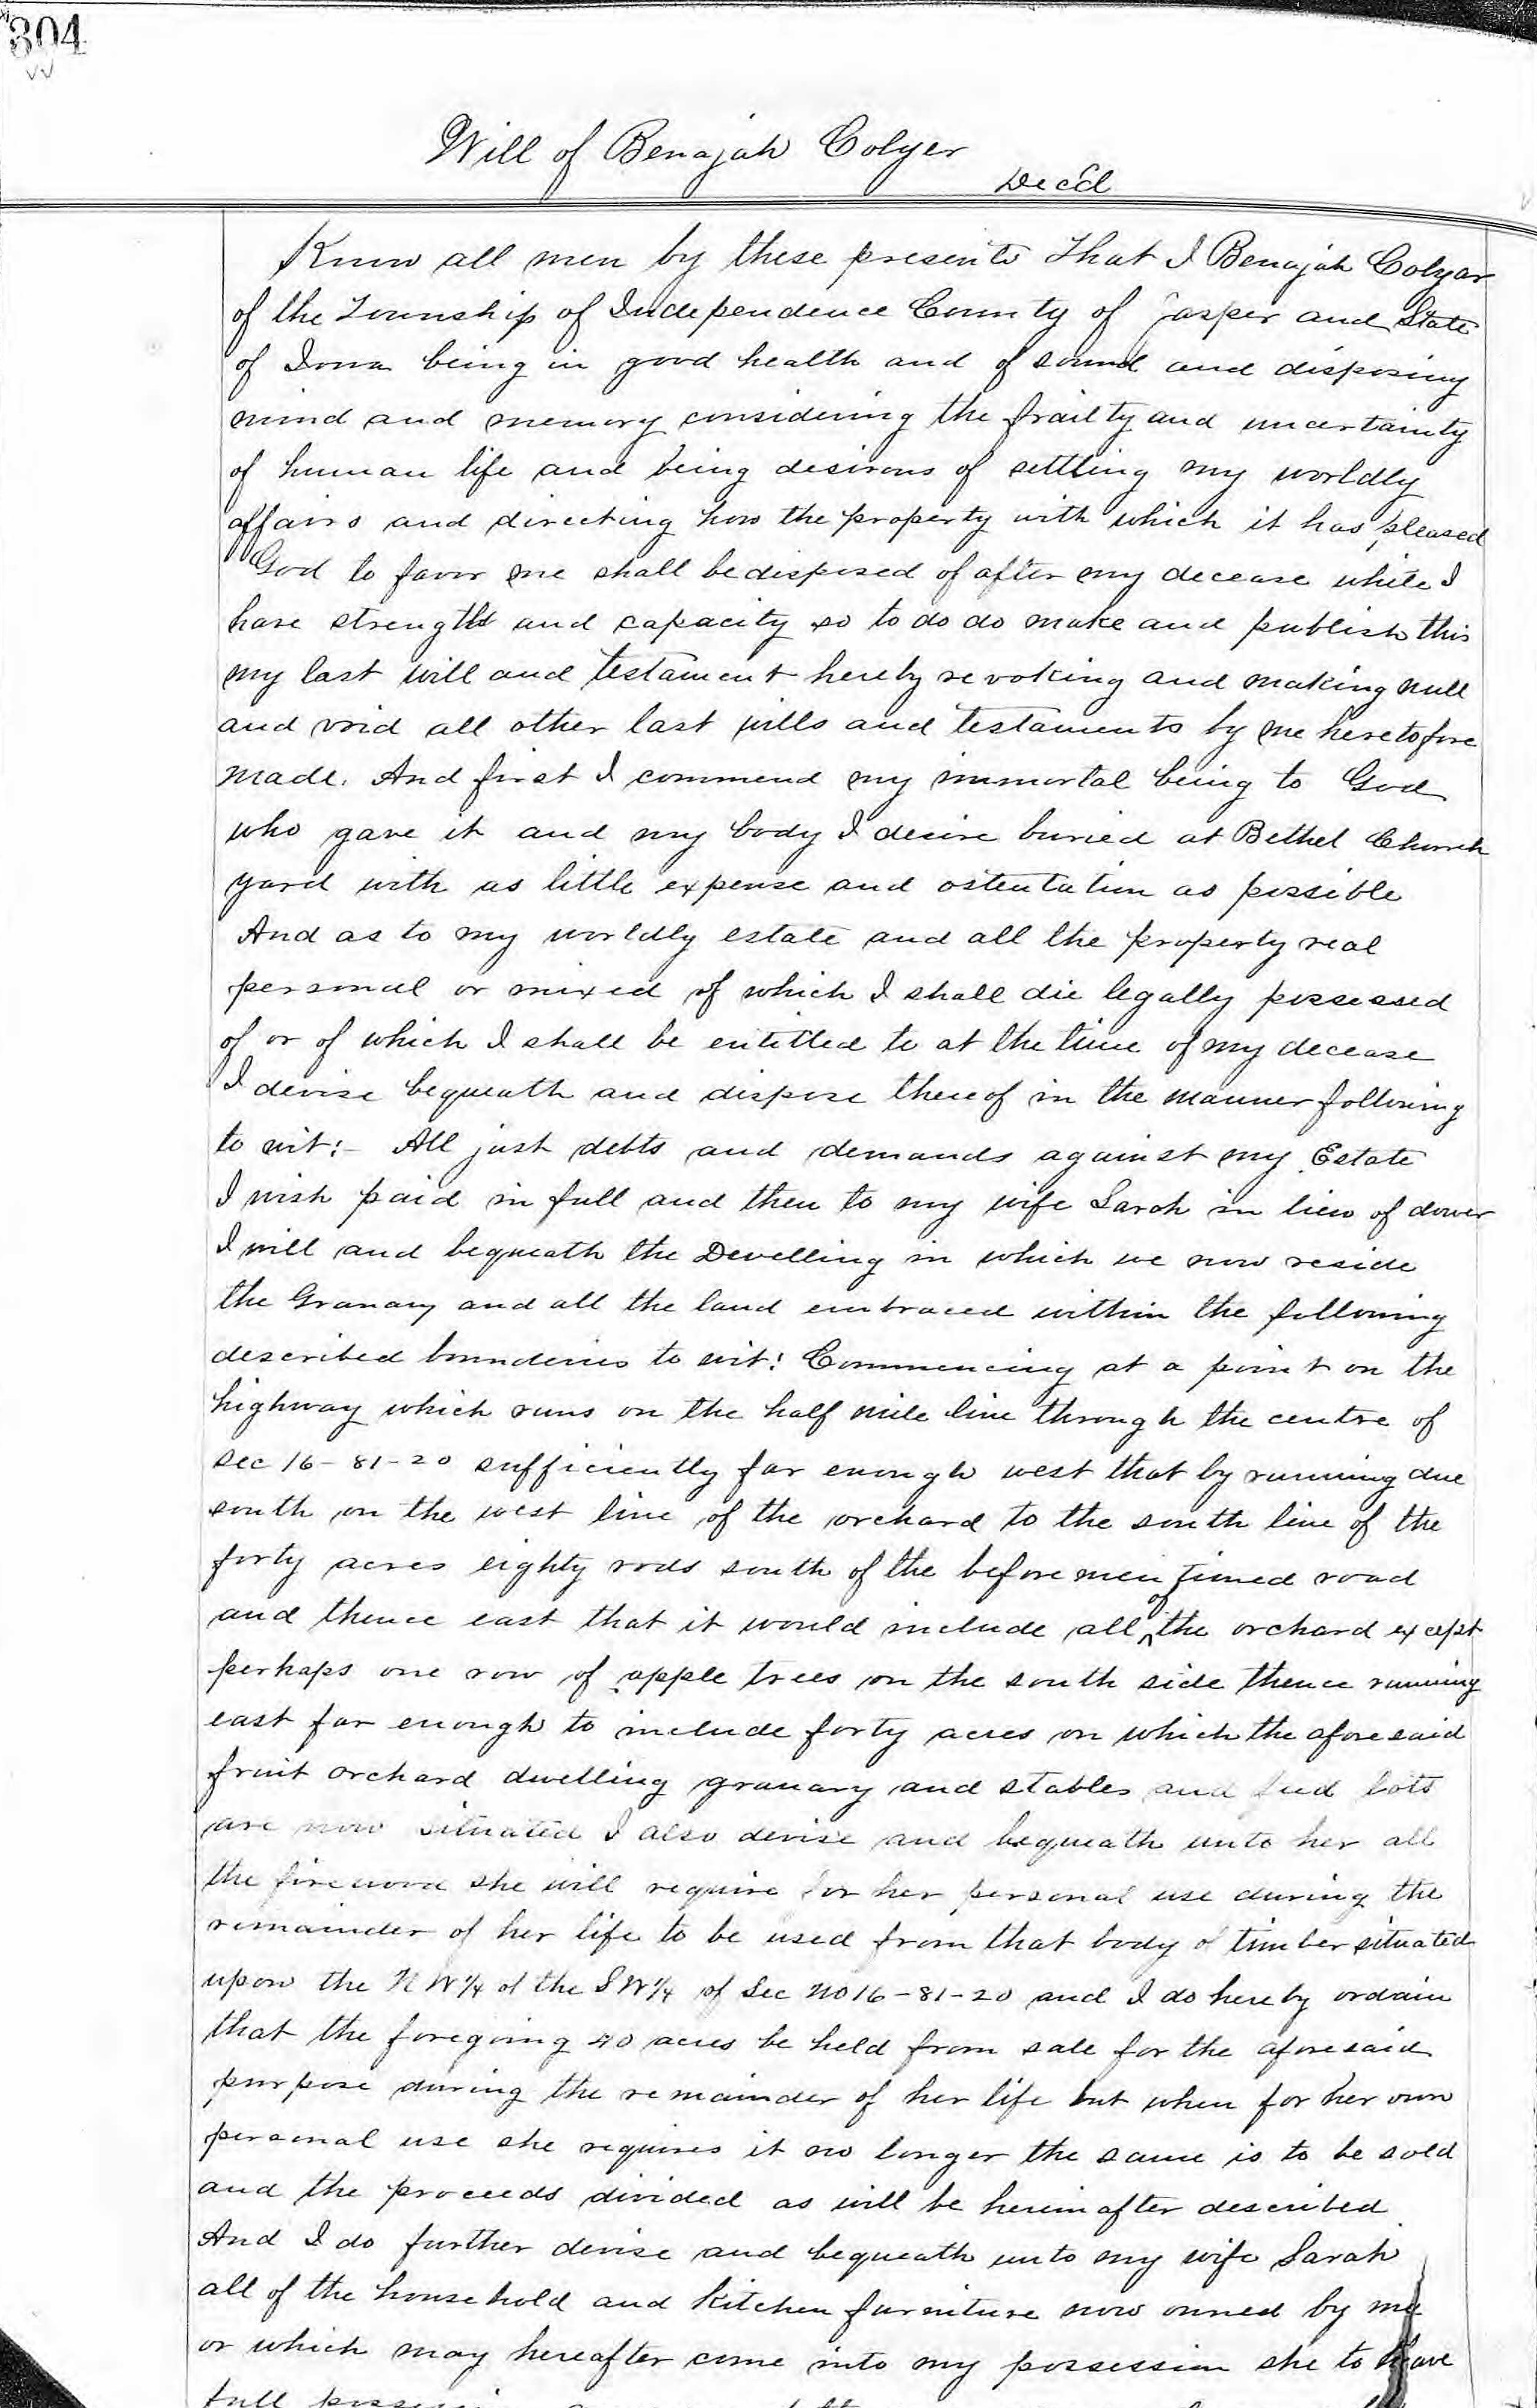 304
Will of Benajah Colyer
Dec'd
Know all men by these presents That I Benajah Colyar
of the Township of Independence County of Jasper and State
of Iowa being in good health and of sound and disposing
mind and memory considering the frailty and uncertainty
of human life and being desirous of settling my worldly
affairs and directing how the property with which it has pleased
God to favor me shall be disposed of after my decease while I
have strength and capacity so to do do make and publish this
my last will and testament hereby revoking and making null
and void all other last wills and testaments by me heretofore
made. And first I commend my immortal being to God
who gave it and my body I desire buried at Bethel Church
yard with as little expense and ostentation as possible
And as to my worldly estate and all the property real
personal or mixed of which I shall die legally possessed
of or of which I shall be entitled to at the time of my decease
I devise bequeath and dispose thereof in the manner following
to wit:- All just debts and demands against my Estate
I wish paid in full and then to my wife Sarah in lieu of dower
I will and bequeath the Dwelling in which we now reside
the Granary and all the land embraced within the following
described bounderies to wit: Commencing at a point on the
highway which runs on the half mile line through the centre of
Sec 16-81-20 sufficiently far enough west that by running due
south on the west line of the orchard to the south line of the
forty acres eighty rods south of the before mentioned road
and thence east that it would include all of the orchard except
perhaps one row of apple trees on the south side thence running
east far enough to include forty acres on which the aforesaid
fruit orchard dwelling granary and stables and feed lots
are now situated I also devise and bequeath unto her all
the firewood she will require for her personal use during the
remainder of her life to be used from that body of timber situated
upon the N W 1/4 of the S W 1/4 of Sec No 16-81-20 and I do hereby ordain
that the foregoing 40 acres be held from sale for the aforesaid
purpose during the remainder of her life but when for her own
personal use she requires it no longer the same is to be sold
and the proceeds divided as will be herein after described
And I do further devise and bequeath unto my wife Sarah
all of the household and kitchen furniture now owned by me
or which may hereafter come into my possession she to have
full